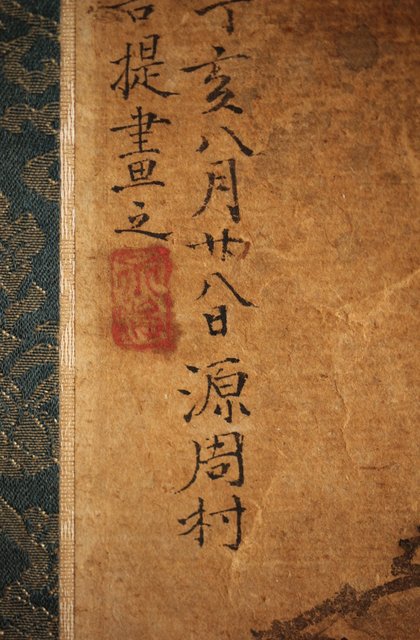 丁亥八月廿八日源周村
提畫之